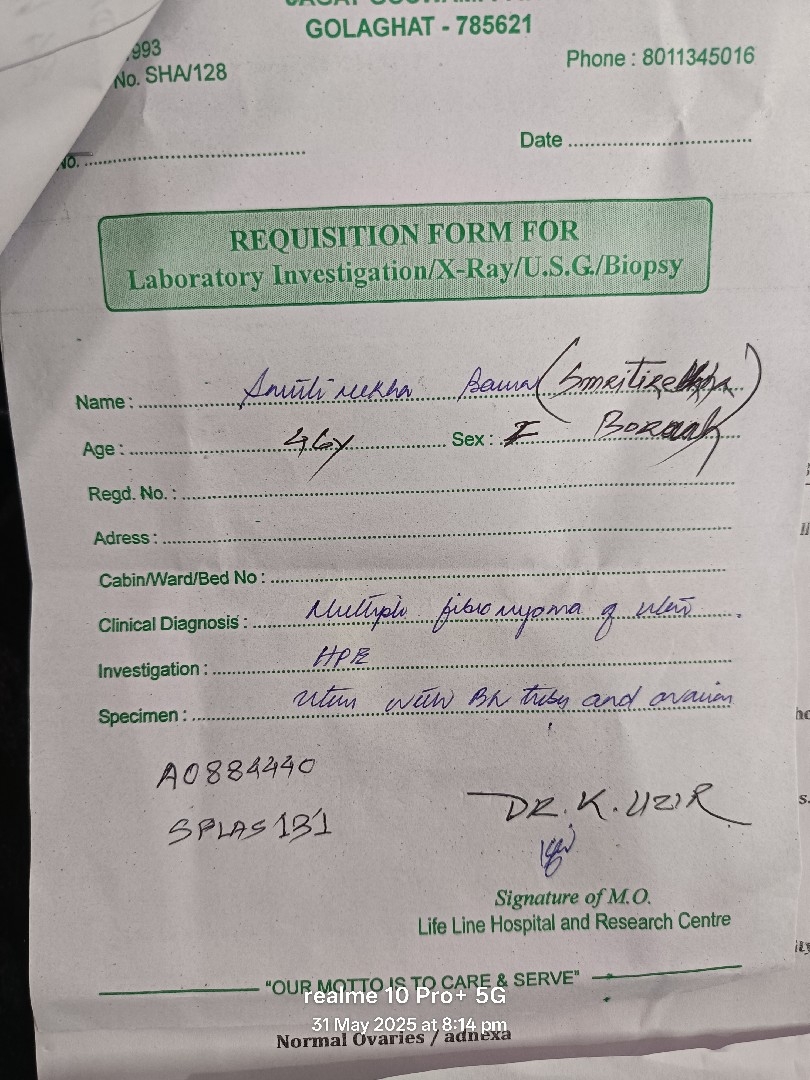 GOLAGHAT - 785621
993
No. SHA/128
Phone : 8011345016
No. ............ Date ............
REQUISITION FORM FOR
Laboratory Investigation/X-Ray/U.S.G./Biopsy
Name : Smriti rekha Barua (Smritirekha
Age : 46y Sex : F Boruah)
Regd. No. :
Adress :
Cabin/Ward/Bed No :
Clinical Diagnosis : Multiple fibromyoma of uterus.
Investigation : HPE
Specimen : Uterus with B/L tubes and ovaries
A0884440
SPLAS131
DR. K. UZIR
Signature of M.O.
Life Line Hospital and Research Centre
"OUR MOTTO IS TO CARE & SERVE"
realme 10 Pro+ 5G
31 May 2025 at 8:14 pm
Normal Ovaries / adnexa